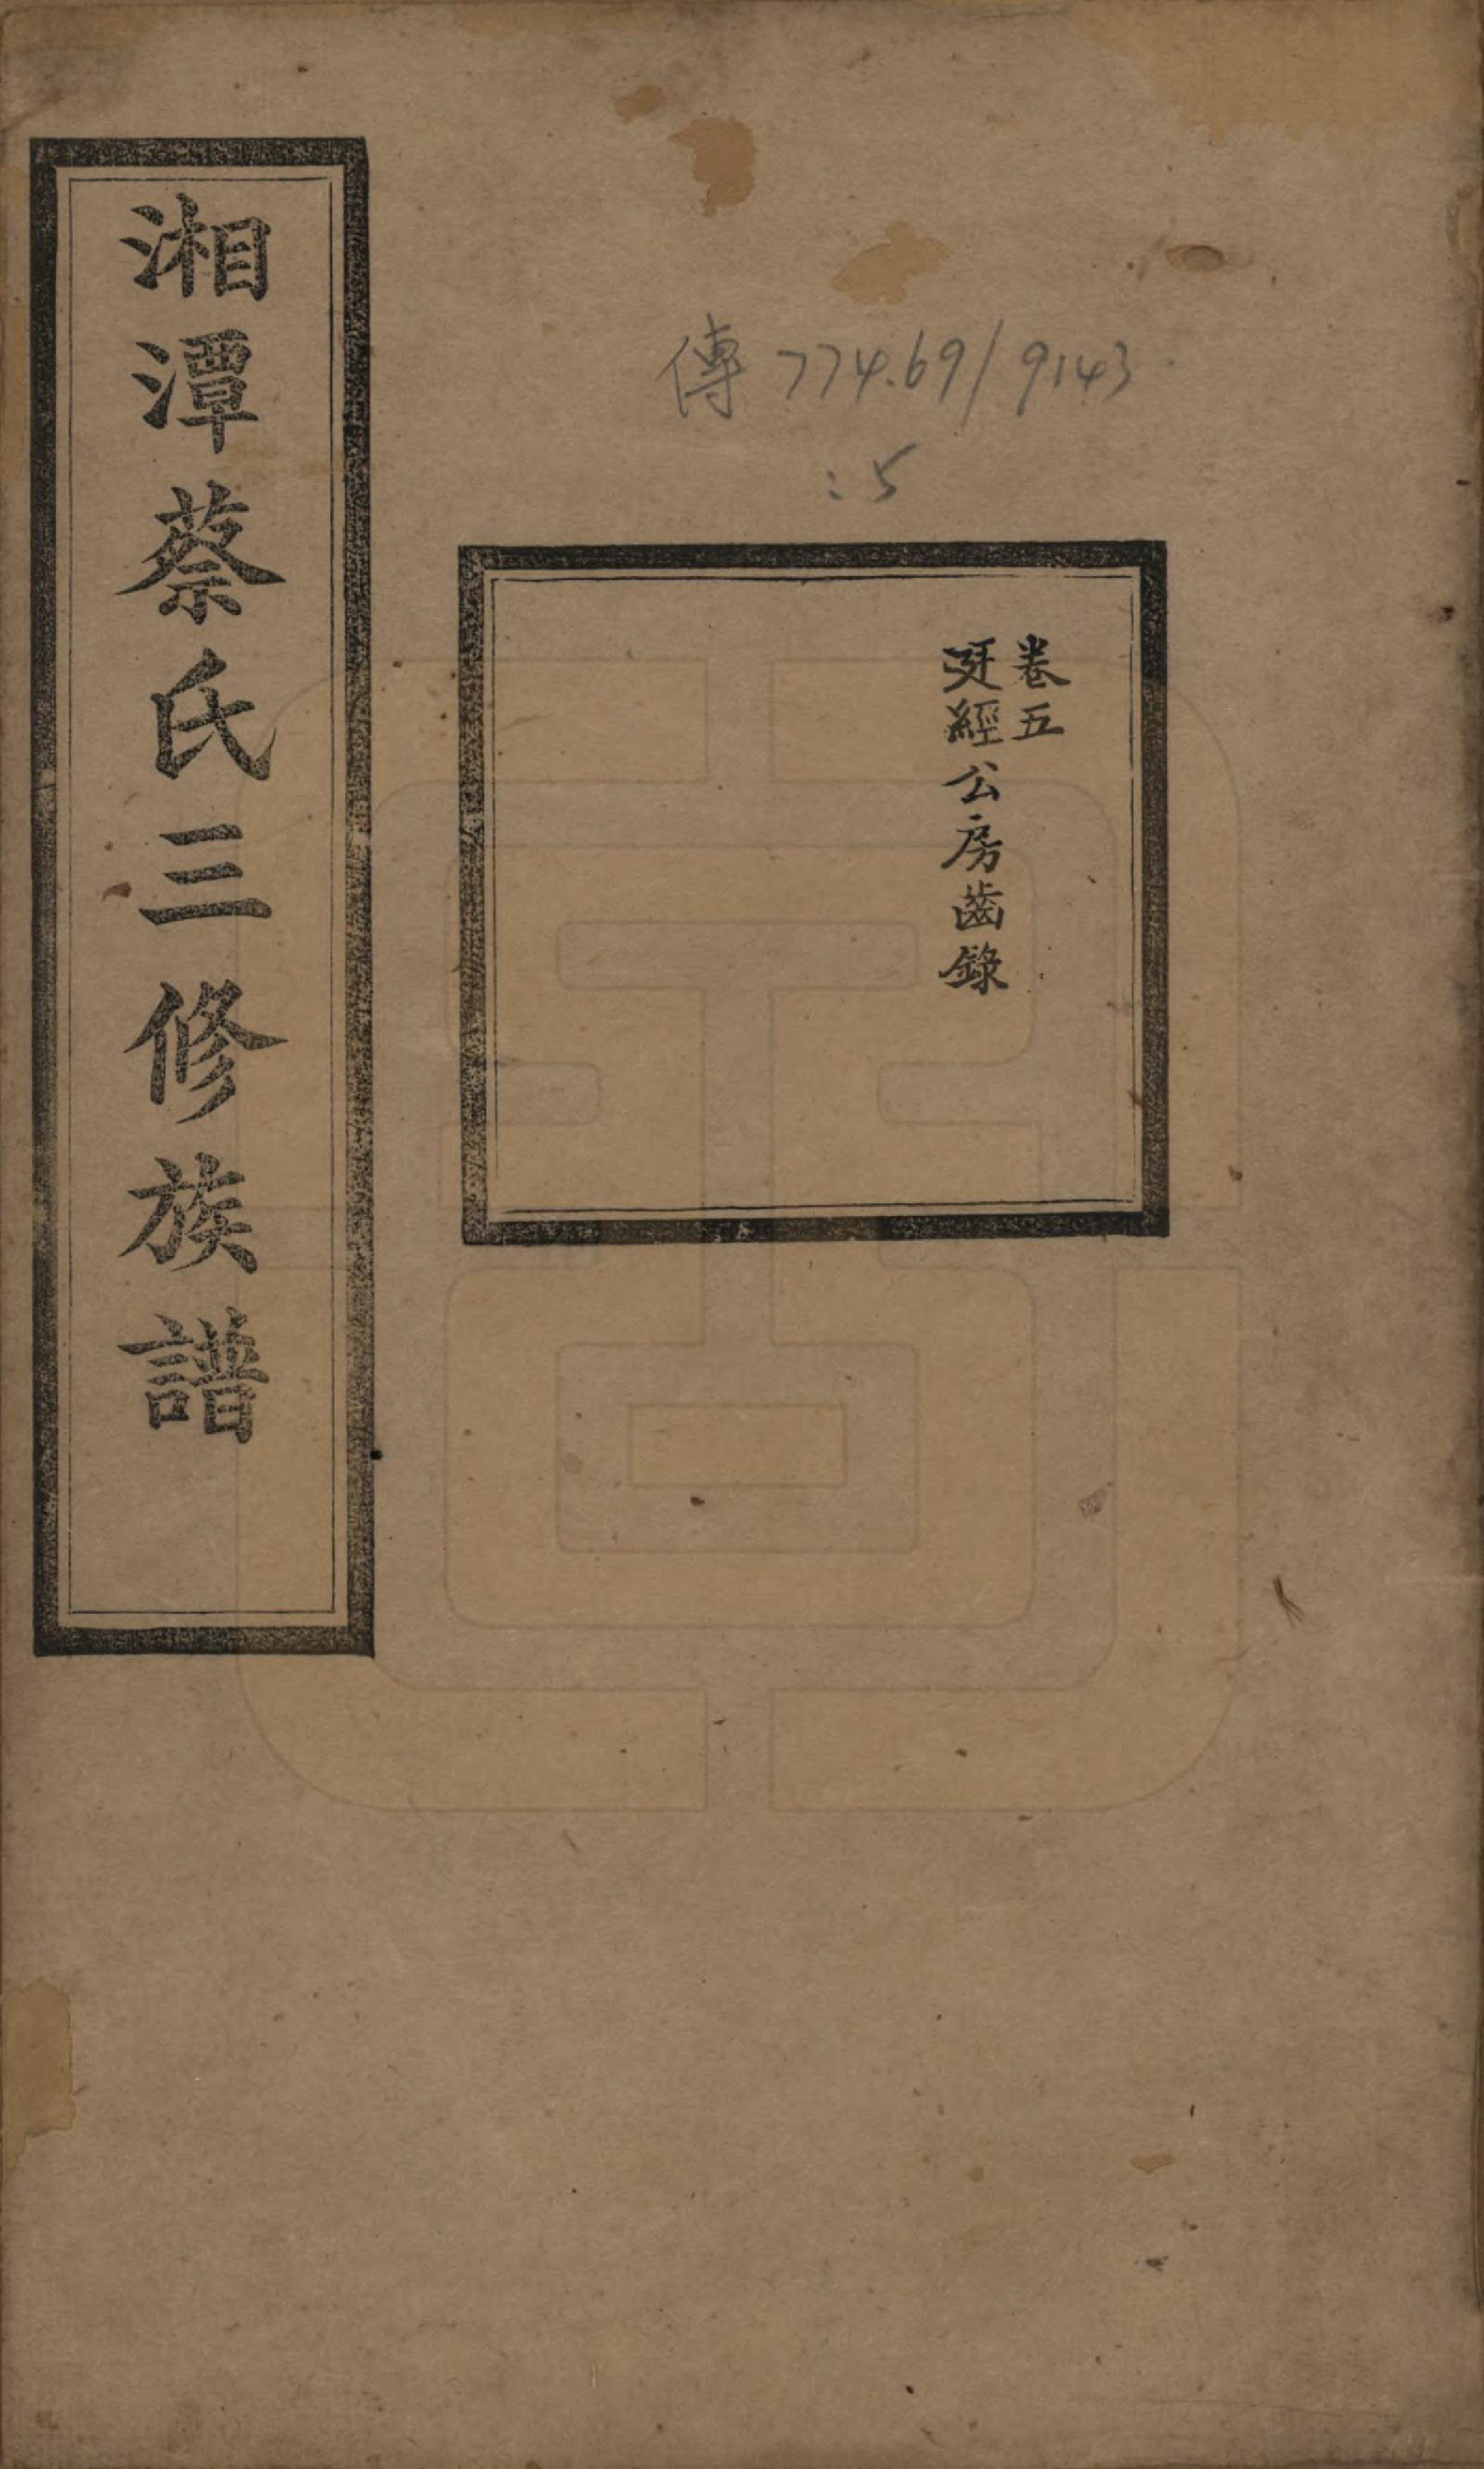 傳 774.69/9143
:5
卷五
廷經公房齒錄
湘潭蔡氏三修族譜